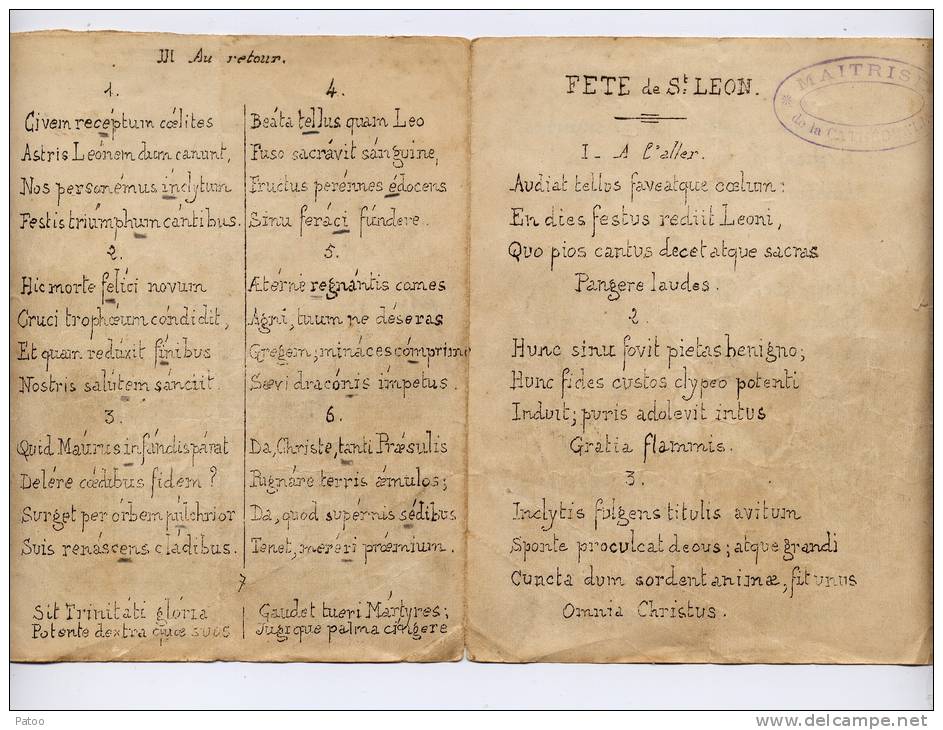 III Au retour.
1.
Civem recéptum cœlites
Astris Leónem dum canunt,
Nos personémus ínclytum
Festis triúmphum cántibus.
2.
Hic morte felíci novum
Cruci trophœum condidit,
Et quam redúxit fínibus
Nostris salútem sánciit.
3.
Quid Maúrus infándis párat
Delére cœdibus fidem ?
Surget per órbem púlchrior
Suis renáscens cládibus.
4.
Beáta tellus quam Leo
Fuso sacrávit sánguine,
Fructus perénnes édocens
Sinu feráci fúndere.
5.
Ætérne regnántis comes
Agni, tuum ne déseras
Gregem; mináces cómprime
Sævi dracónis ímpetus.
6.
Da, Christe, tanti Præsulis
Pugnáre terris æmulos;
Da, quod supérnis sédibus
Tenet, meréri præmium.
7
Sit Trinitáti glória
Potente dextra quœ suos
Gaudet tueri Mártyres;
Jugique palma cíngere
FETE de St. LEON.
MAITRISE
de la
I _ A l'aller.
Audiat tellus faveatque cœlum:
En dies festus rediit Leoni,
Quo pios cantus decet atque sacras
Pangere laudes.
2.
Hunc sinu fovit pietas benigno;
Hunc fides custos clypeo potenti
Induit; puris adolevit intus
Gratia flammis.
3.
Inclytis fulgens titulis avitum
Sponte proculcat decus; atque grandi
Cuncta dum sordent animæ, fit unus
Omnia Christus.
Patoo
delcampe.net